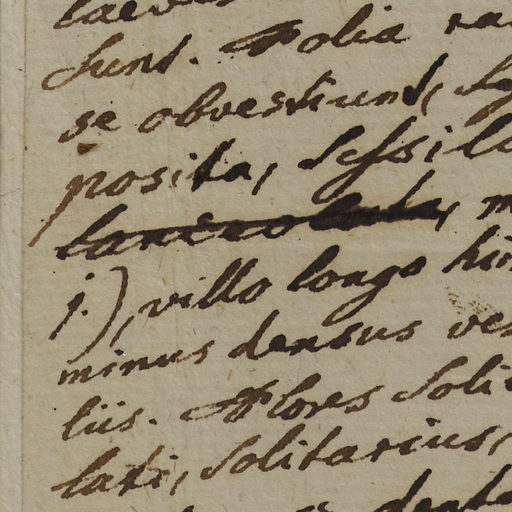 laeves
sunt. Folia ra
se obvestiunt, s
posita, sessil
lanceolata, m
j.), villo longo hir
minus densus ves
liis. Flores soli
lati, solitarius,